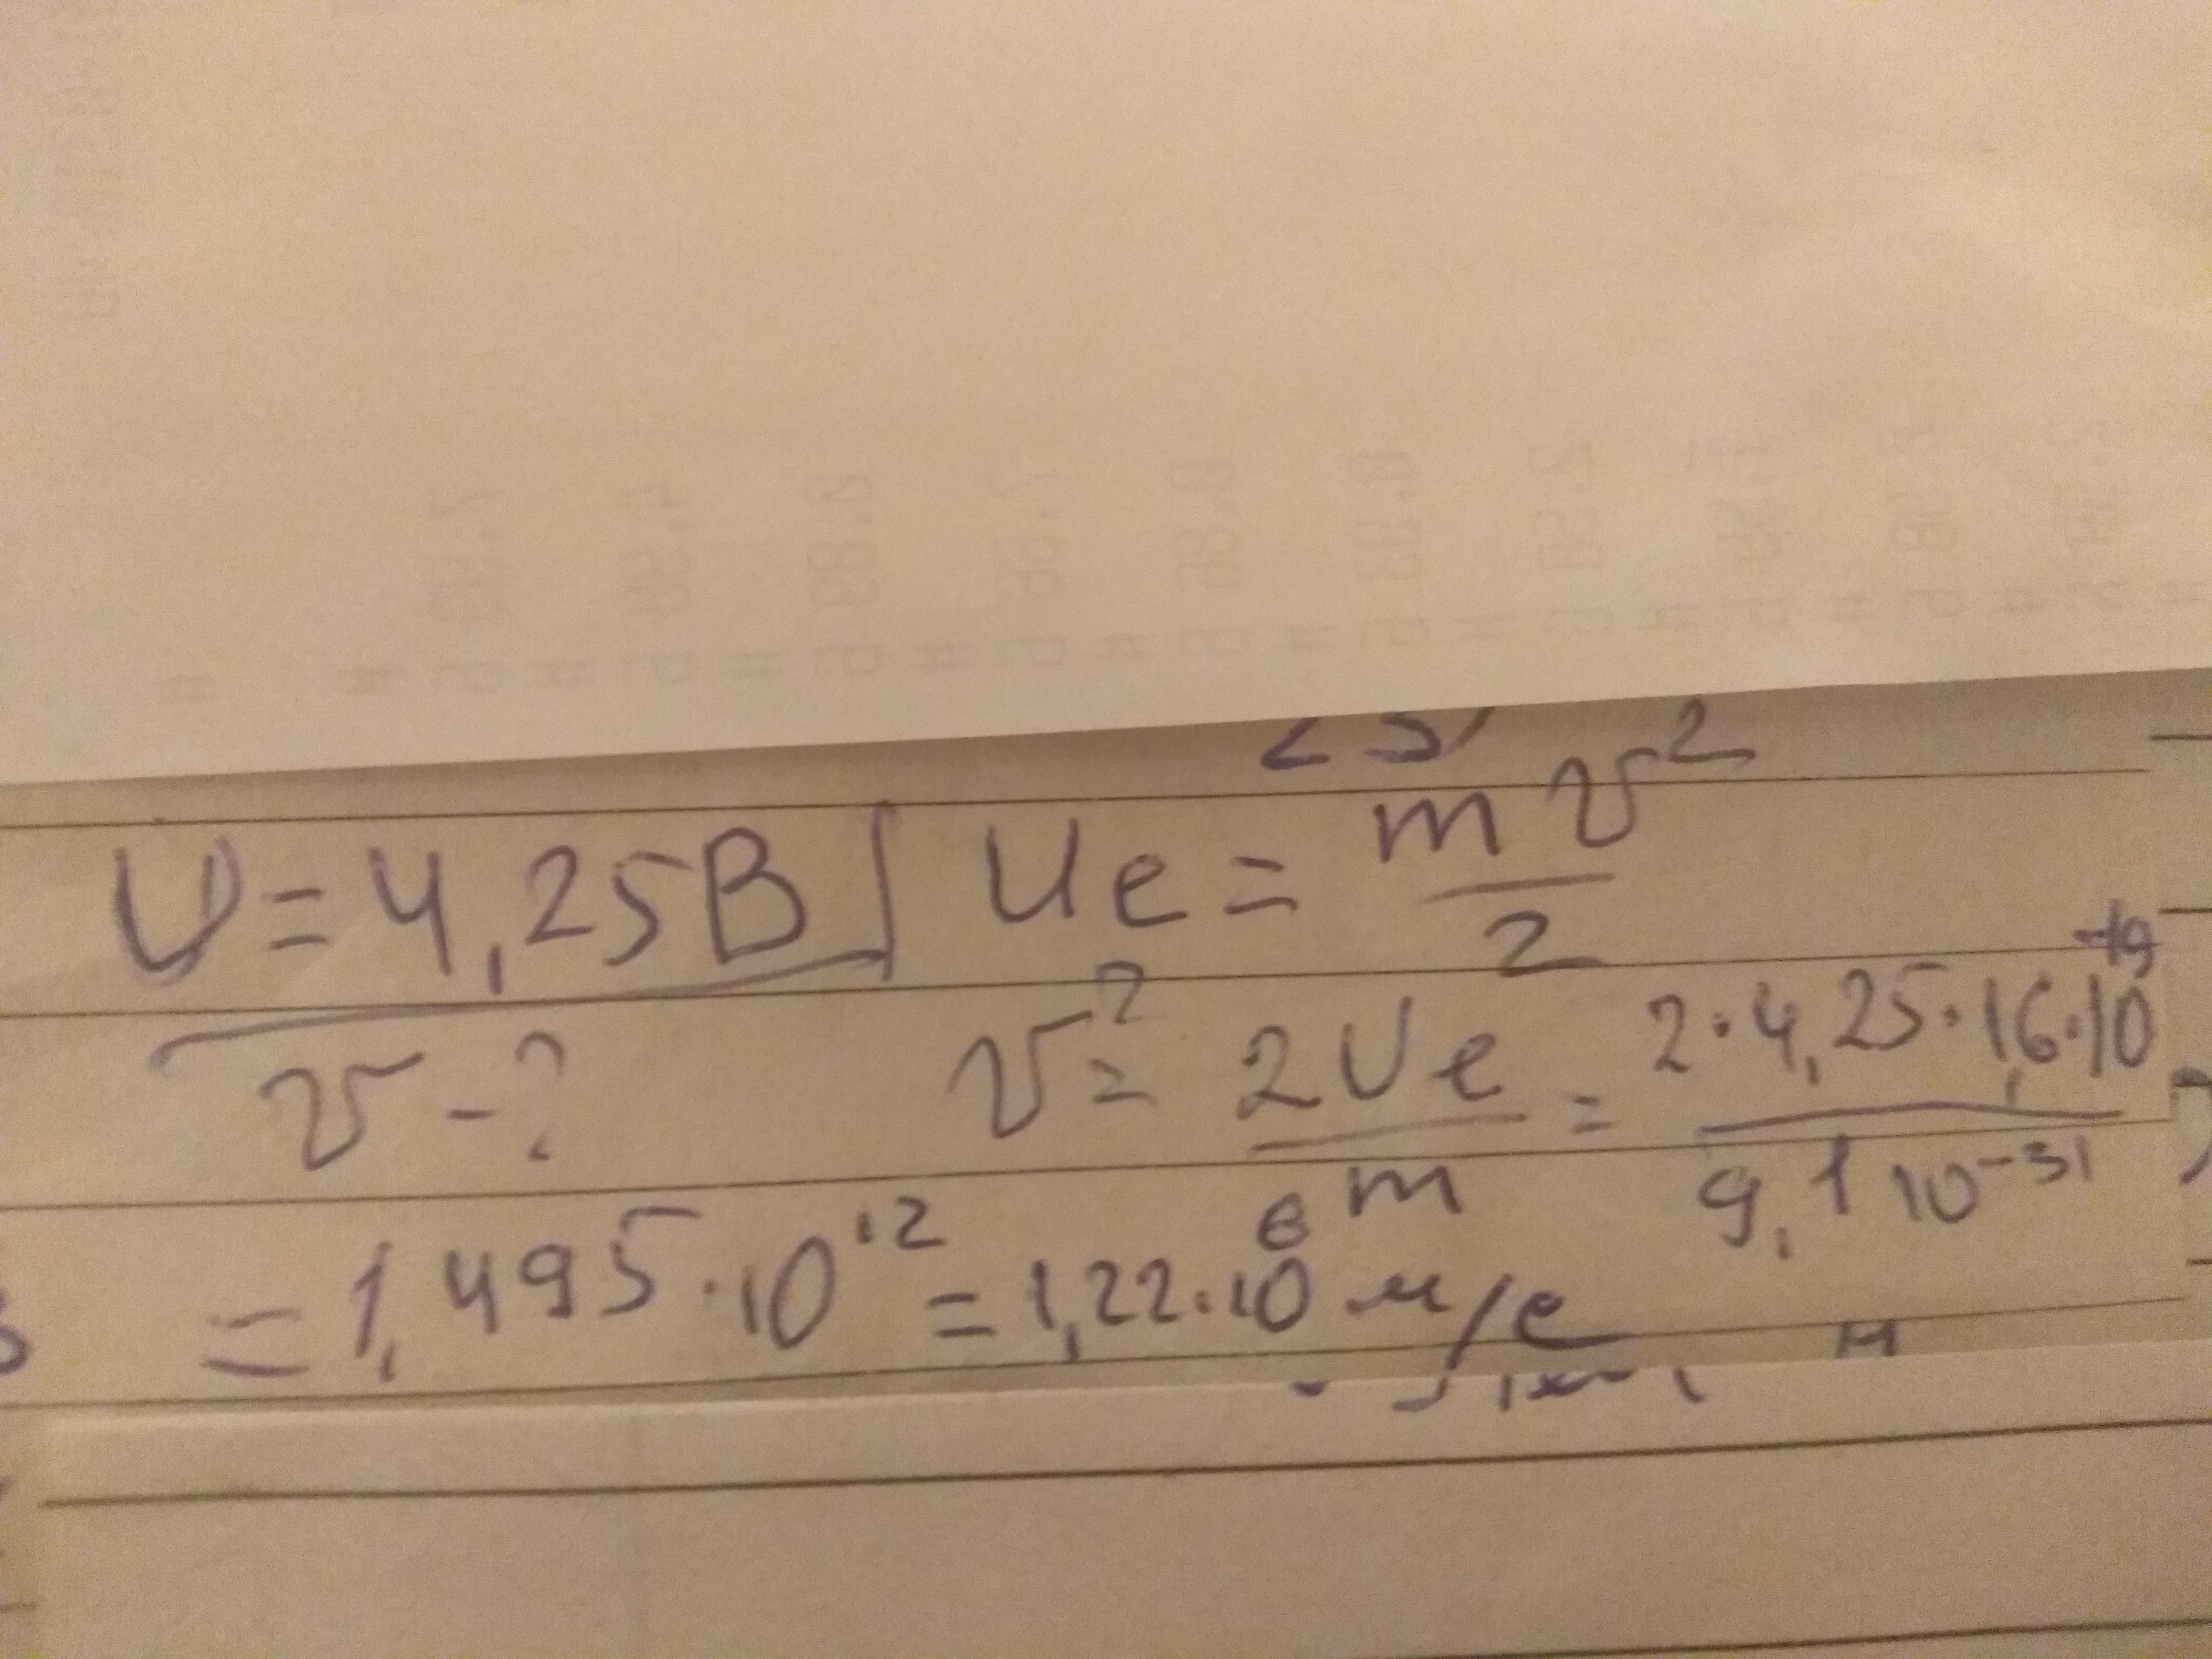 U = 4,25 В | Ue = mv²/2
v - ? v² = 2Ue/m = 2·4,25·1,6·10⁻¹⁹/9,1 10⁻³¹
= 1,495·10¹² = 1,22·10⁶ м/с